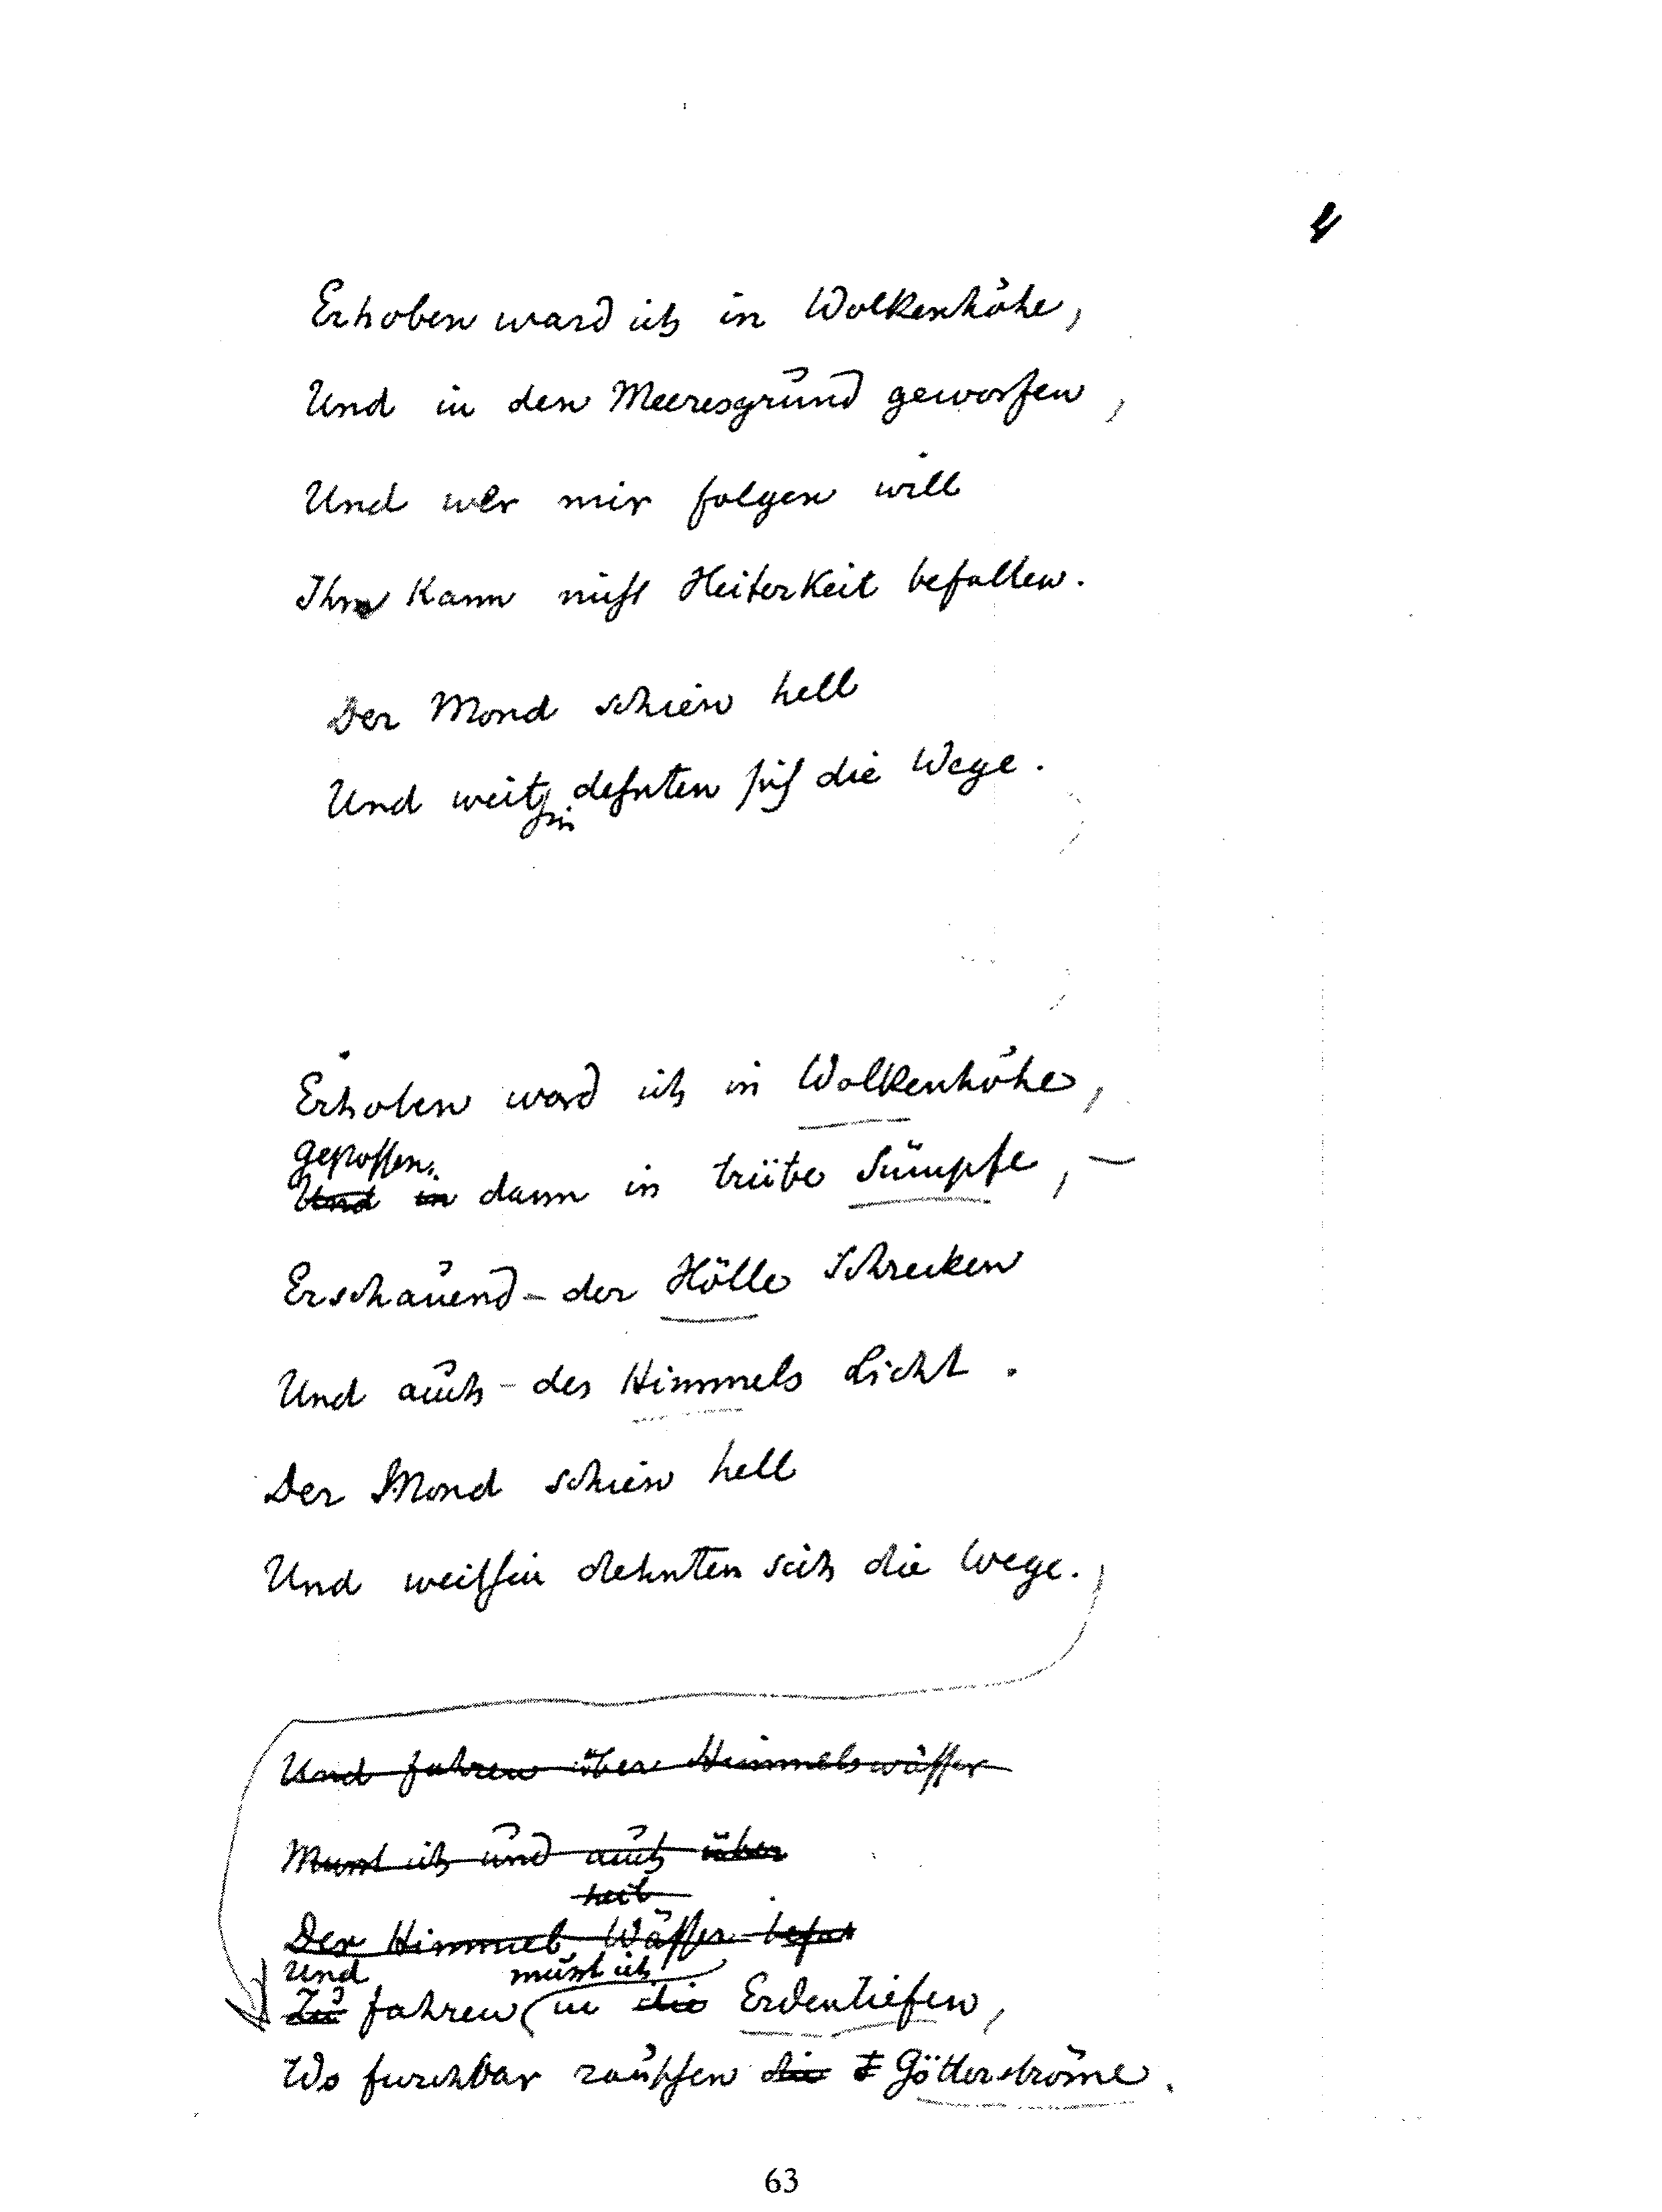 4
Erhoben ward ich in Wolkenhöhe,
Und in den Meeresgrund geworfen,
Und wer mir folgen will
Ihn kann nicht Heiterkeit befallen.
Der Mond schien hell
Und weithin dehnten sich die Wege.
Erhoben ward ich in Wolkenhöhe,
gestossen.
Und in dann in trübe Sümpfe, –
Erschauend – der Hölle Schrecken
Und auch – des Himmels Licht.
Der Mond schien hell
Und weithin dehnten sich die Wege.
Und fahren über Himmelswässer
Musst ich und auch über
Der Himmel Wässer
Und musst ich
Zu fahren in die Erdentiefen,
Wo furchbar rauschen die Götterströme.
63